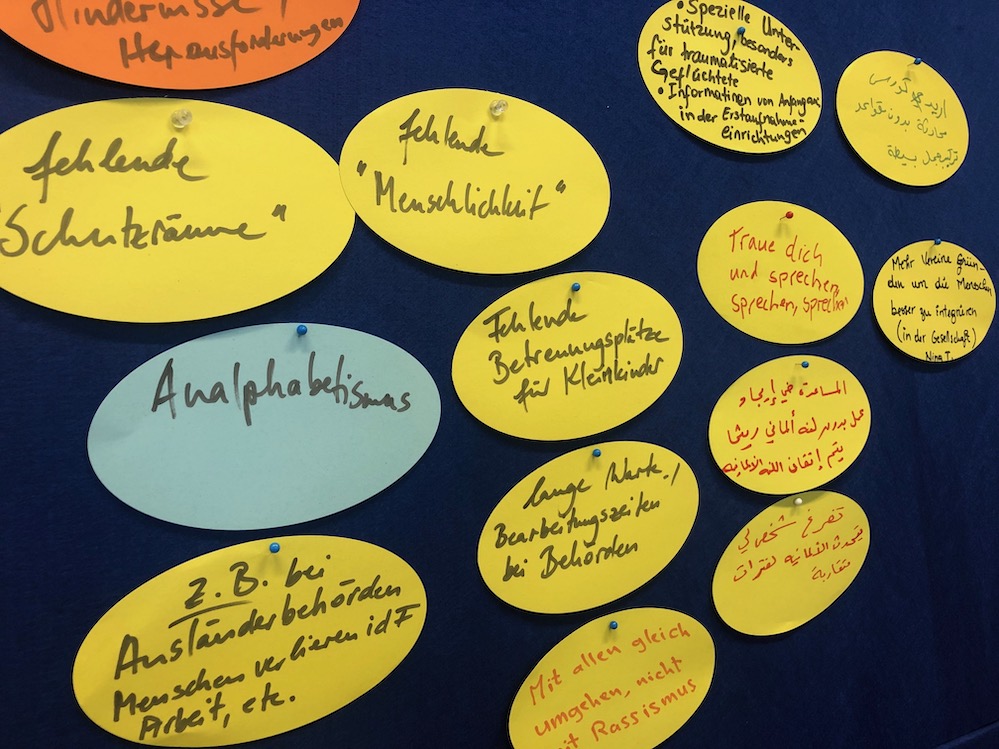 Hindernisse /
Herausforderungen
fehlende
"Schutzräume"
fehlende
"Menschlichkeit"
Analphabetismus
Fehlende
Betreuungsplätze
für Kleinkinder
lange Warte- /
Bearbeitungszeiten
bei Behörden
z.B. bei
Ausländerbehörden
Menschen verlieren idF
Arbeit, etc.
Mit allen gleich
umgehen, nicht
mit Rassismus
• Spezielle Unter-
stützung, besonders
für traumatisierte
Geflüchtete
• Informationen von Anfang an
in der Erstaufnahme-
einrichtungen
اريد كورس
محادثة بدون قواعد
تركيب جمل بسيطة
Traue dich
und sprechen,
sprechen, sprechen
Mehr Vereine Grün-
den um die Menschen
besser zu integrieren
(in der Gesellschaft)
Nina T.
المساعدة في إيجاد
عمل بدون لغه ألماني ريثما
يتم إتقان اللغه الالمانيه
تفرغ شخص لي
يتحدث الألمانيه لفترات
متقاربة